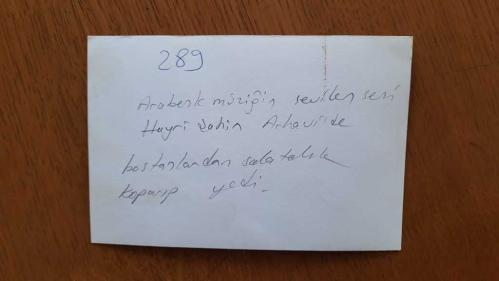 289
Arabesk müziğin sevilen sesi
Hayri Şahin Arhavi'de
bostanlardan salatalık
koparıp yedi.